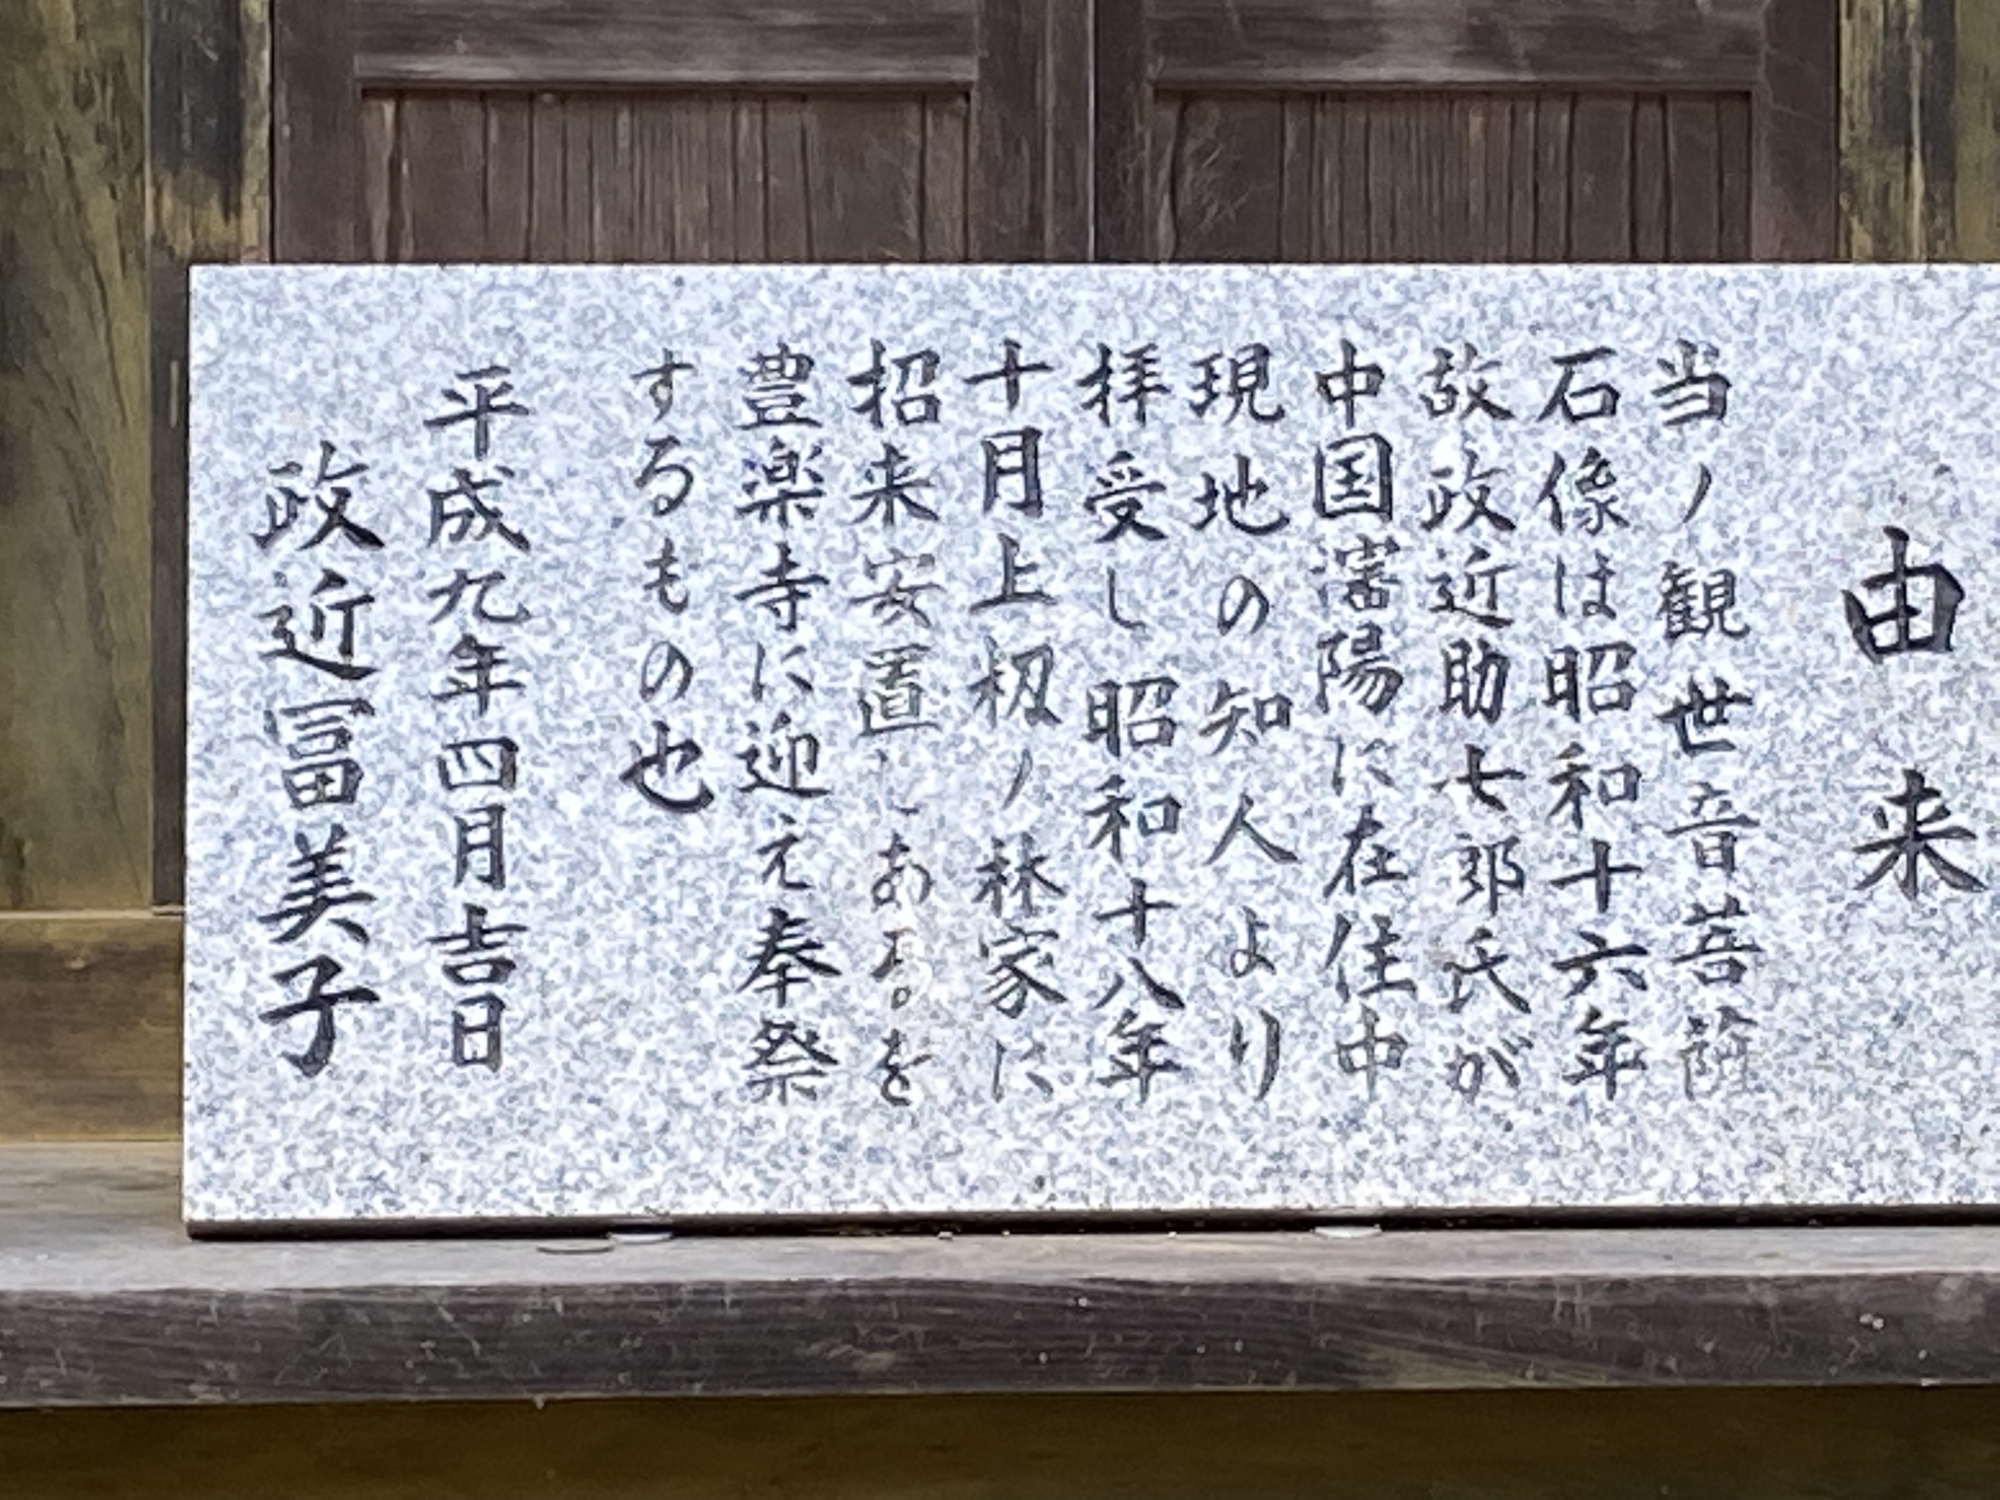 由来
当ノ観世音菩薩
石像は昭和十六年
故政近助七郎氏が
中国瀋陽に在住中
現地の知人より
拝受し昭和十八年
十月上杒ノ林家に
招来安置しあるを
豊楽寺に迎え奉祭
するもの也
平成九年四月吉日
政近冨美子